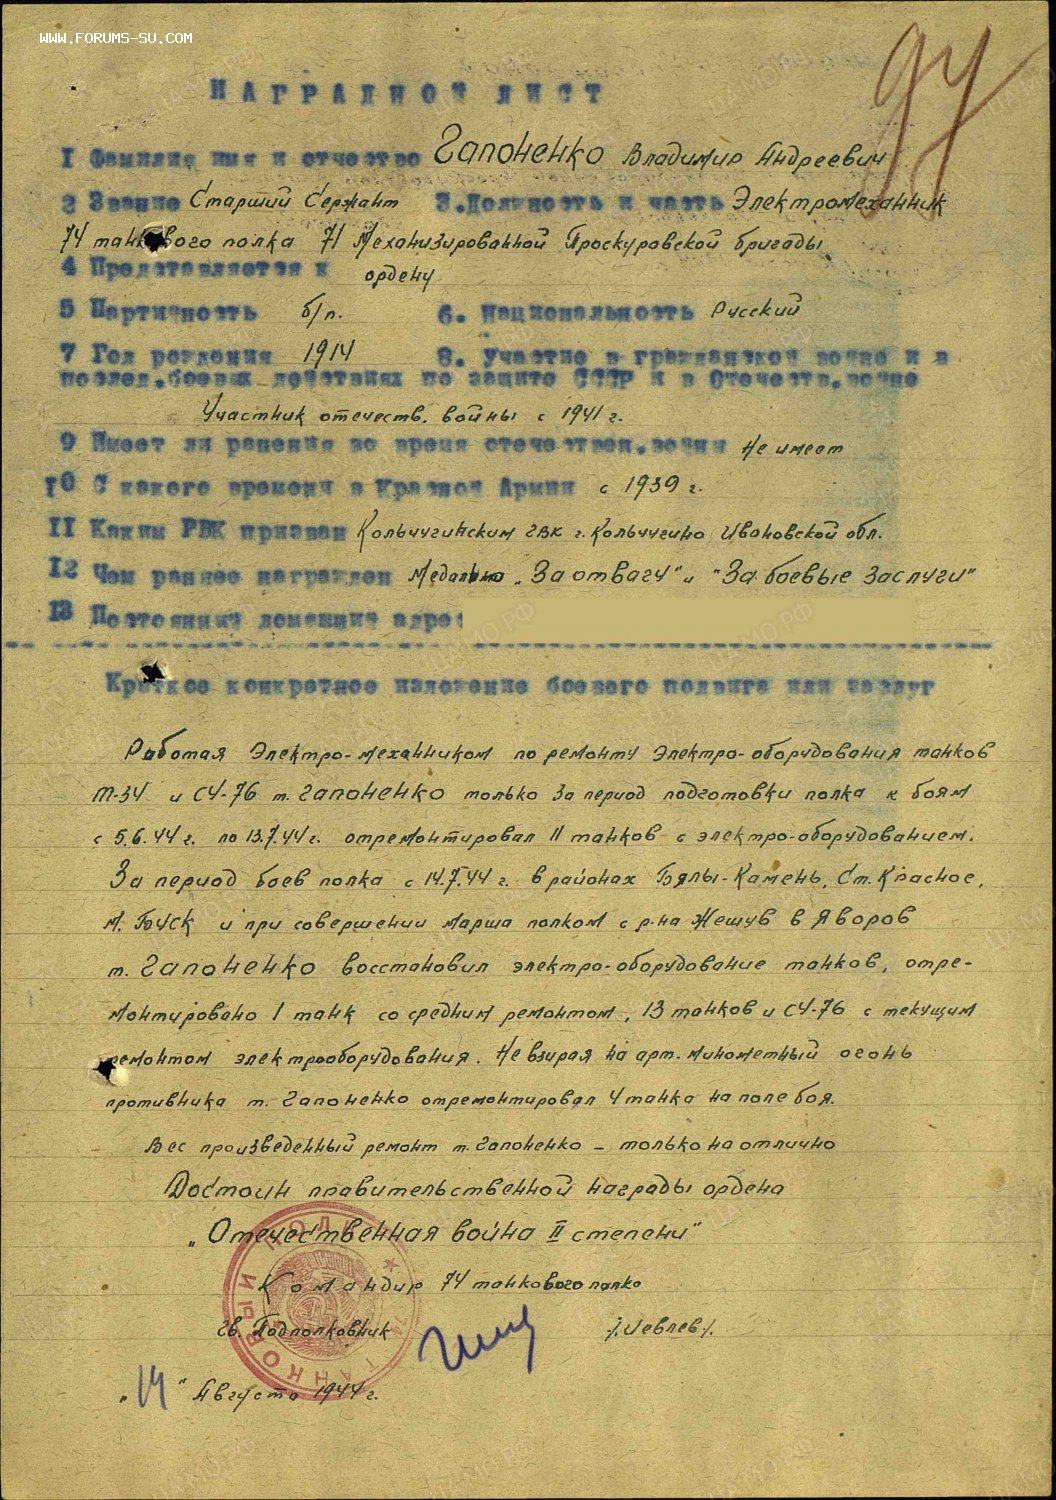 WWW.FORUMS-SU.COM
94
НАГРАДНОЙ ЛИСТ
1 Фамилия имя и отчество Гапоненко Владимир Андреевич
2 Звание Старший Сержант 3. Должность и часть Электромеханник
74 танкового полка 71 Механизированной Проскуровской бригады
4 Представляется к ордену
5 Партийность б/п. 6. Национальность Русский
7 Год рождения 1914 8. Участие в гражданской войне и в
послед. боевых действиях по защите СССР и в Отечеств. войне
Участник отечеств. войны с 1941 г.
9 Имеет ли ранения во время отечествен. войны Не имеет
10 С какого времени в Красной Армии с 1939 г.
11 Каким РВК призван Кольчугинским ГВК г. Кольчугино Ивановской обл.
12 Чем раннее награжден Медалью „За отвагу" и "За боевые заслуги"
13 Постоянный домашний адрес:
Краткое конкретное изложение боевого подвига или заслуг
Работая Электро-механником по ремонту Электро-оборудования танков
Т-34 и СУ-76 т. Гапоненко только за период подготовки полка к боям
с 5.6.44 г. по 13.7.44 г. отремонтировал 11 танков с электро-оборудованием.
За период боев полка с 14.7.44 г. в районах Бялы-Камень, Ст. Красное,
м. Буск и при совершении марша полком с р-на Жешув в Яворов
т. Гапоненко восстановил электро-оборудование танков, отре-
монтировано 1 танк со средним ремонтом, 13 танков и СУ-76 с текущим
ремонтом электрооборудования. Не взирая на арт. минометный огонь
противника т. Гапоненко отремонтировал 4 танка на поле боя.
Вес произведенный ремонт т. Гапоненко – только на отлично
Достоин правительственной награды ордена
„Отечественная война II степени"
Командир 74 танкового полка
гв. Подполковник /Иевлев/.
„14" Августа 1944 г.
74 ТАНКОВЫЙ ПОЛК